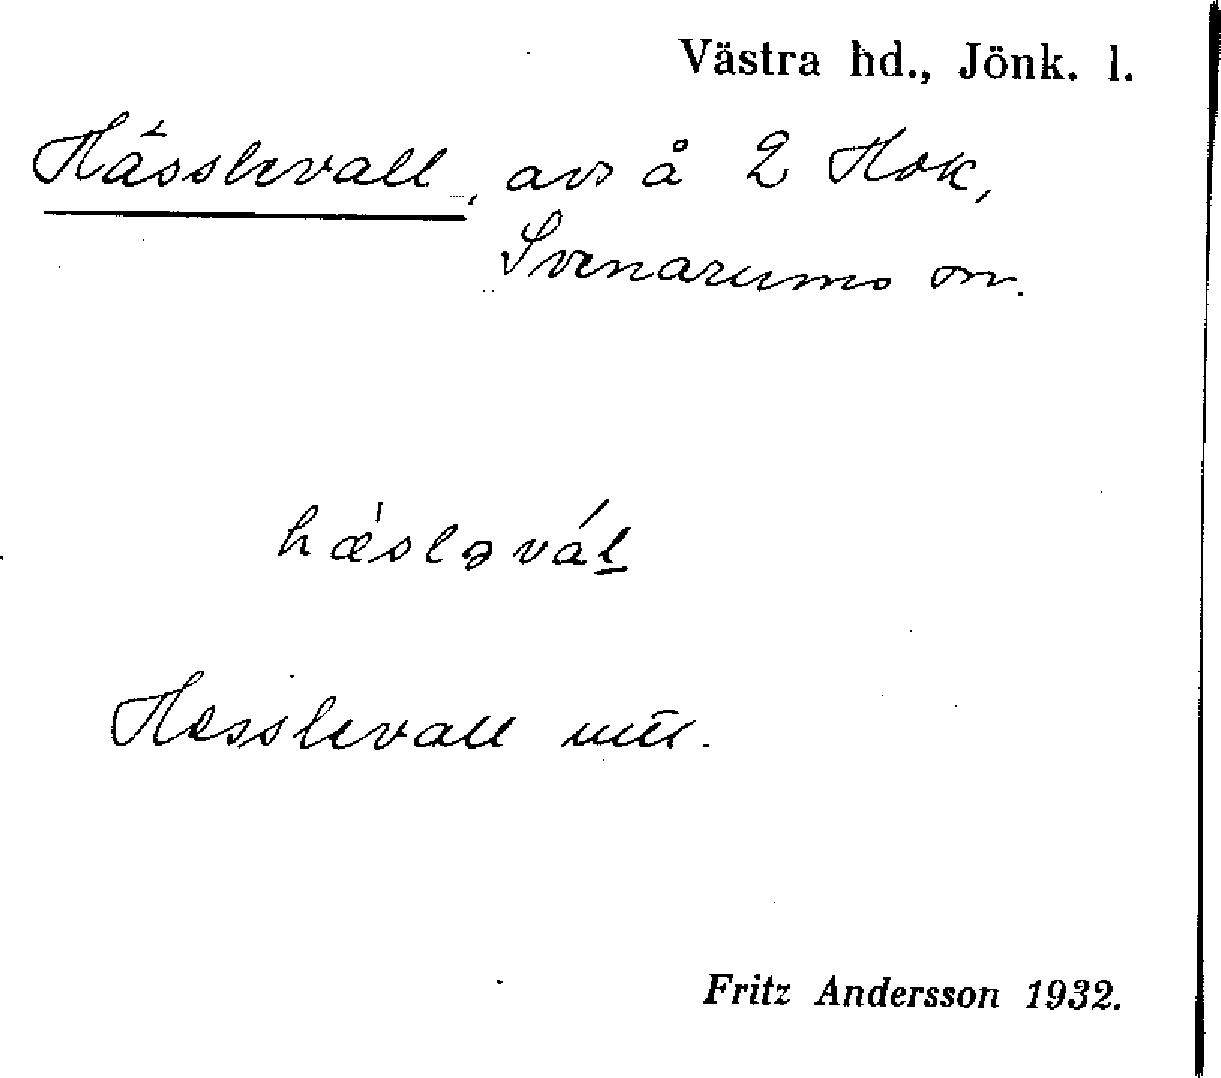 Västra hd., Jönk. l.
Hässlevall, avs å 2 Hok,
Svenarums sn.
hæ̍sləvál̲
Hesslevall
Fritz Andersson 1932.